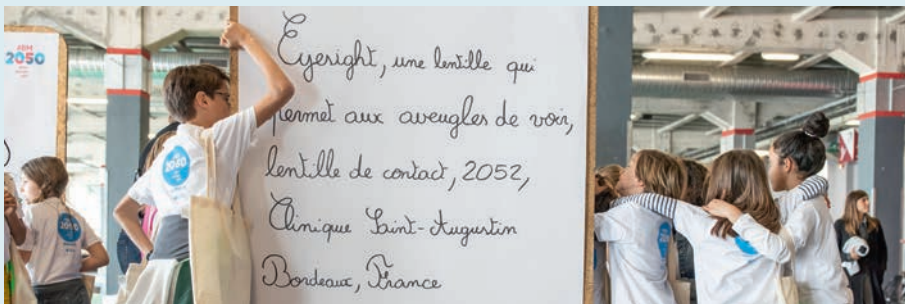 2050
Eyeright, une lentille qui
permet aux aveugles de voir,
lentille de contact, 2052,
Clinique Saint-Augustin
Bordeaux, France
2050
2050